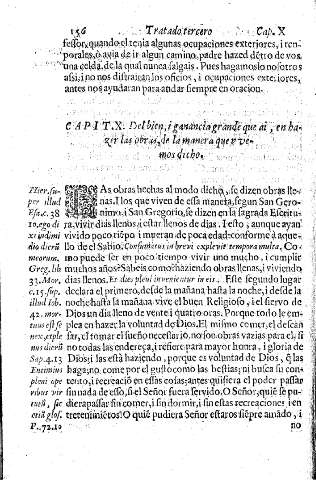 156 Tratado tercero Cap. X
fessor, quando el tenia algunas ocupaciones exteriores, i tem-
porales, o avia de ir algun camino, padre hazed dẽtro de vos
una celda, de la qual nunca salgais. Pues hagamoslo nosotros
assi, i no nos distraeran los oficios, i ocupaciones exteriores,
antes nos ayudaran para andar siempre en oracion.
CAPIT. X. Del bien, i ganancia grande que ai, en ha-
zir las obras, de la manera que avemos dicho.
LAS obras hechas al modo dicho, se dizen obras lle-
nas. I los que viven de esta manera, segun San Gero-
nimo, i San Gregorio, se dizen en la sagrada Escritu-
ra, vivir dias llenos, i estar llenos de dias. I esto, aunque ayan
vivido poco tiẽpo i mueran de poca edad: conforme à aque-
llo de el Sabio. Consumatus in brevi explevit tempora multa. Co-
mo puede ser en poco tiempo vivir uno mucho, i cumplir
muchos años? Sabeis como? haziendo obras llenas, i viviendo
dias llenos. Et dies pleni invenientur in eis. Este segundo lugar
declara el primero, desde la mañana hasta la noche, i desde la
noche hasta la mañana vive el buen Religioso, i el siervo de
Dios un dia lleno de veinte i quatro oras. Porque todo le em-
plea en hazer la voluntad de Dios. El mismo comer, el descan-
sar, el tomar el sueño necessario, no son obras varias para el, si
no todas las ordereça, i refiere para mayor honra, i gloria de
Dios; i las està haziendo, porque es voluntad de Dios, q̃ las
haga: no come por el gusto como las bestias; ni busca su con-
tento, i recreació en essas cosas; antes quisiera el poder passar
sin nada de esso, si el Señor fuera servido. O Señor, quiẽ se pu-
diera passar sin comer, i sin dormir, i sin estas recreaciones i en-
tretenimiẽtos! O quiẽ pudiera Señor estaros siẽpre amãdo, i
no
Hier. su-
per illud
Esa. c. 38
10. ego di
xi in dimi
dio dierũ
meorum.
Greg. lib
33. Mor.
c. 15. sup.
illud Iob.
42. mor-
tuus est se
nex, & ple
nus dierũ
Sap. 4. 13
pleni ope
ribus vir
P. 72. 10